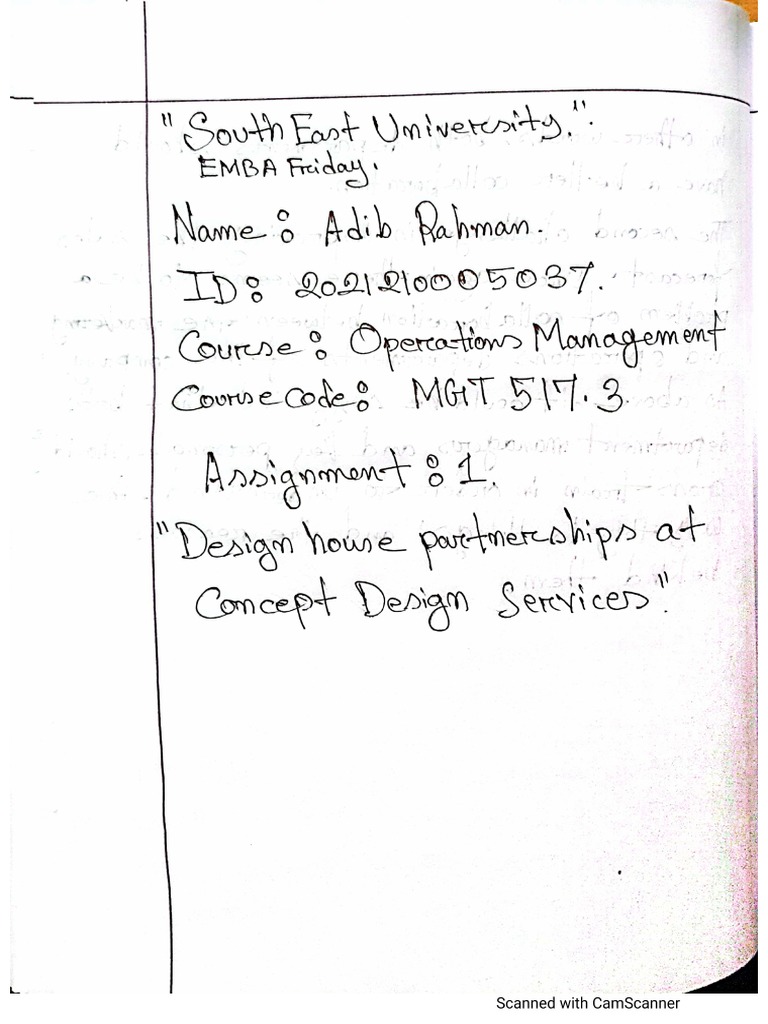 "South East University.".
EMBA Friday.
Name: Adib Rahman.
ID: 2021210005037.
Course: Operations Management
Course code: MGT 517.3
Assignment: 1.
"Design house partnerships at
Concept Design Services."
Scanned with CamScanner